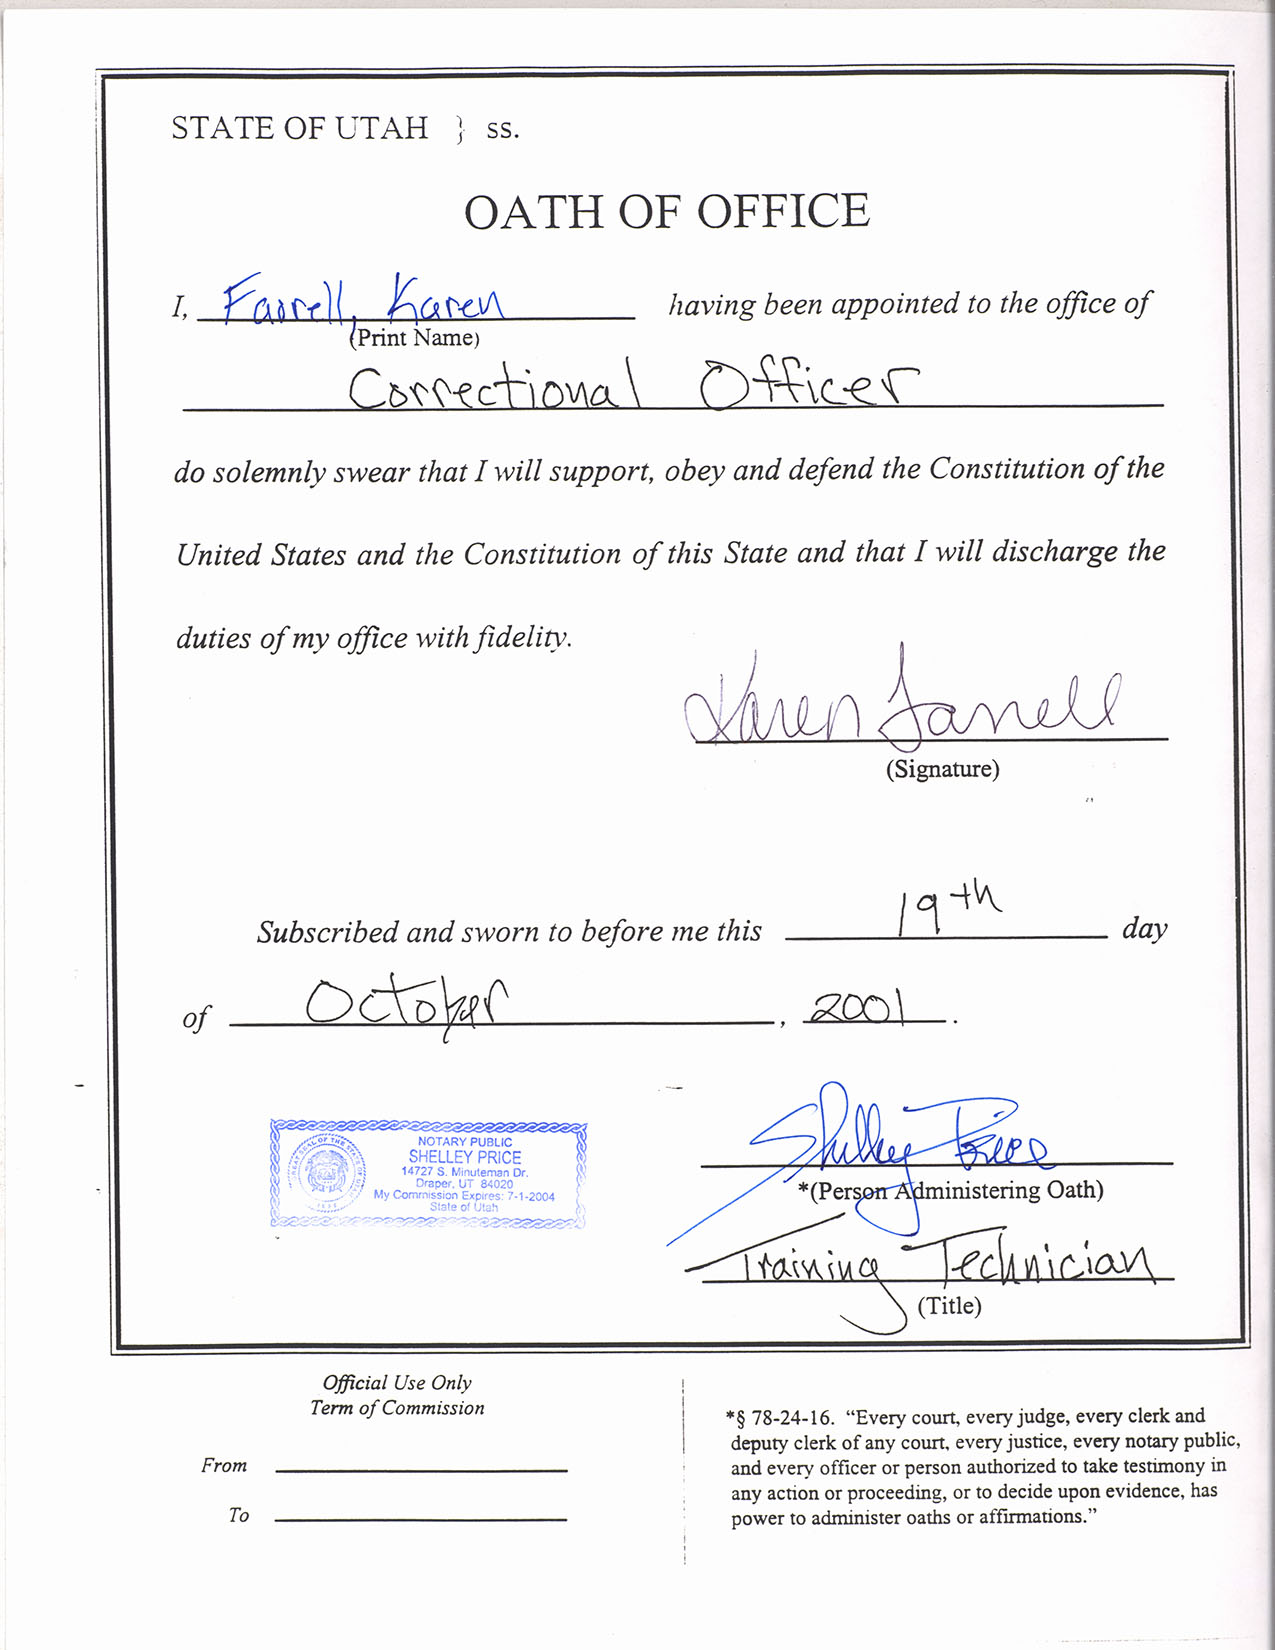 STATE OF UTAH } ss.
OATH OF OFFICE
I, Farrell, Karen having been appointed to the office of
(Print Name)
Correctional Officer
do solemnly swear that I will support, obey and defend the Constitution of the
United States and the Constitution of this State and that I will discharge the
duties of my office with fidelity.
Karen Farrell
(Signature)
Subscribed and sworn to before me this 19th day
of October, 2001.
NOTARY PUBLIC
SHELLEY PRICE
14727 S. Minuteman Dr.
Draper, UT 84020
My Commission Expires: 7-1-2004
State of Utah
Shelley Price
*(Person Administering Oath)
Training Technician
(Title)
Official Use Only
Term of Commission
From
To
*§ 78-24-16. “Every court, every judge, every clerk and
deputy clerk of any court, every justice, every notary public,
and every officer or person authorized to take testimony in
any action or proceeding, or to decide upon evidence, has
power to administer oaths or affirmations.”